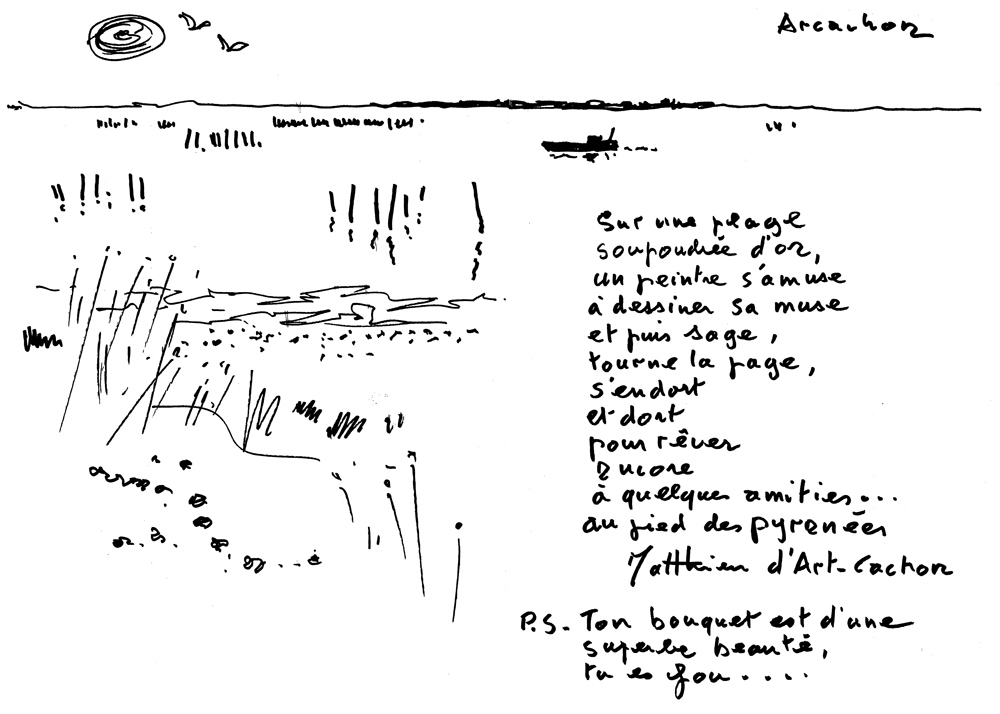 Arcachon
Sur une plage
soupoudrée d'or,
un peintre s'amuse
à dessiner sa muse
et puis sage,
tourne la page,
s'endort
et dort
pour rêver
encore
à quelques amitiés...
au pied des pyrenées
Matthieu d'Art-Cachon
P.S. Ton bouquet est d'une
superbe beauté,
tu es fou....